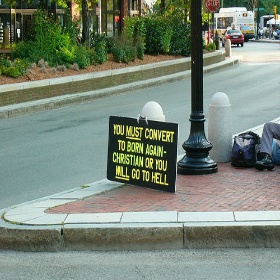 YOU MUST CONVERT
TO BORN AGAIN-
CHRISTIAN OR YOU
WILL GO TO HELL.